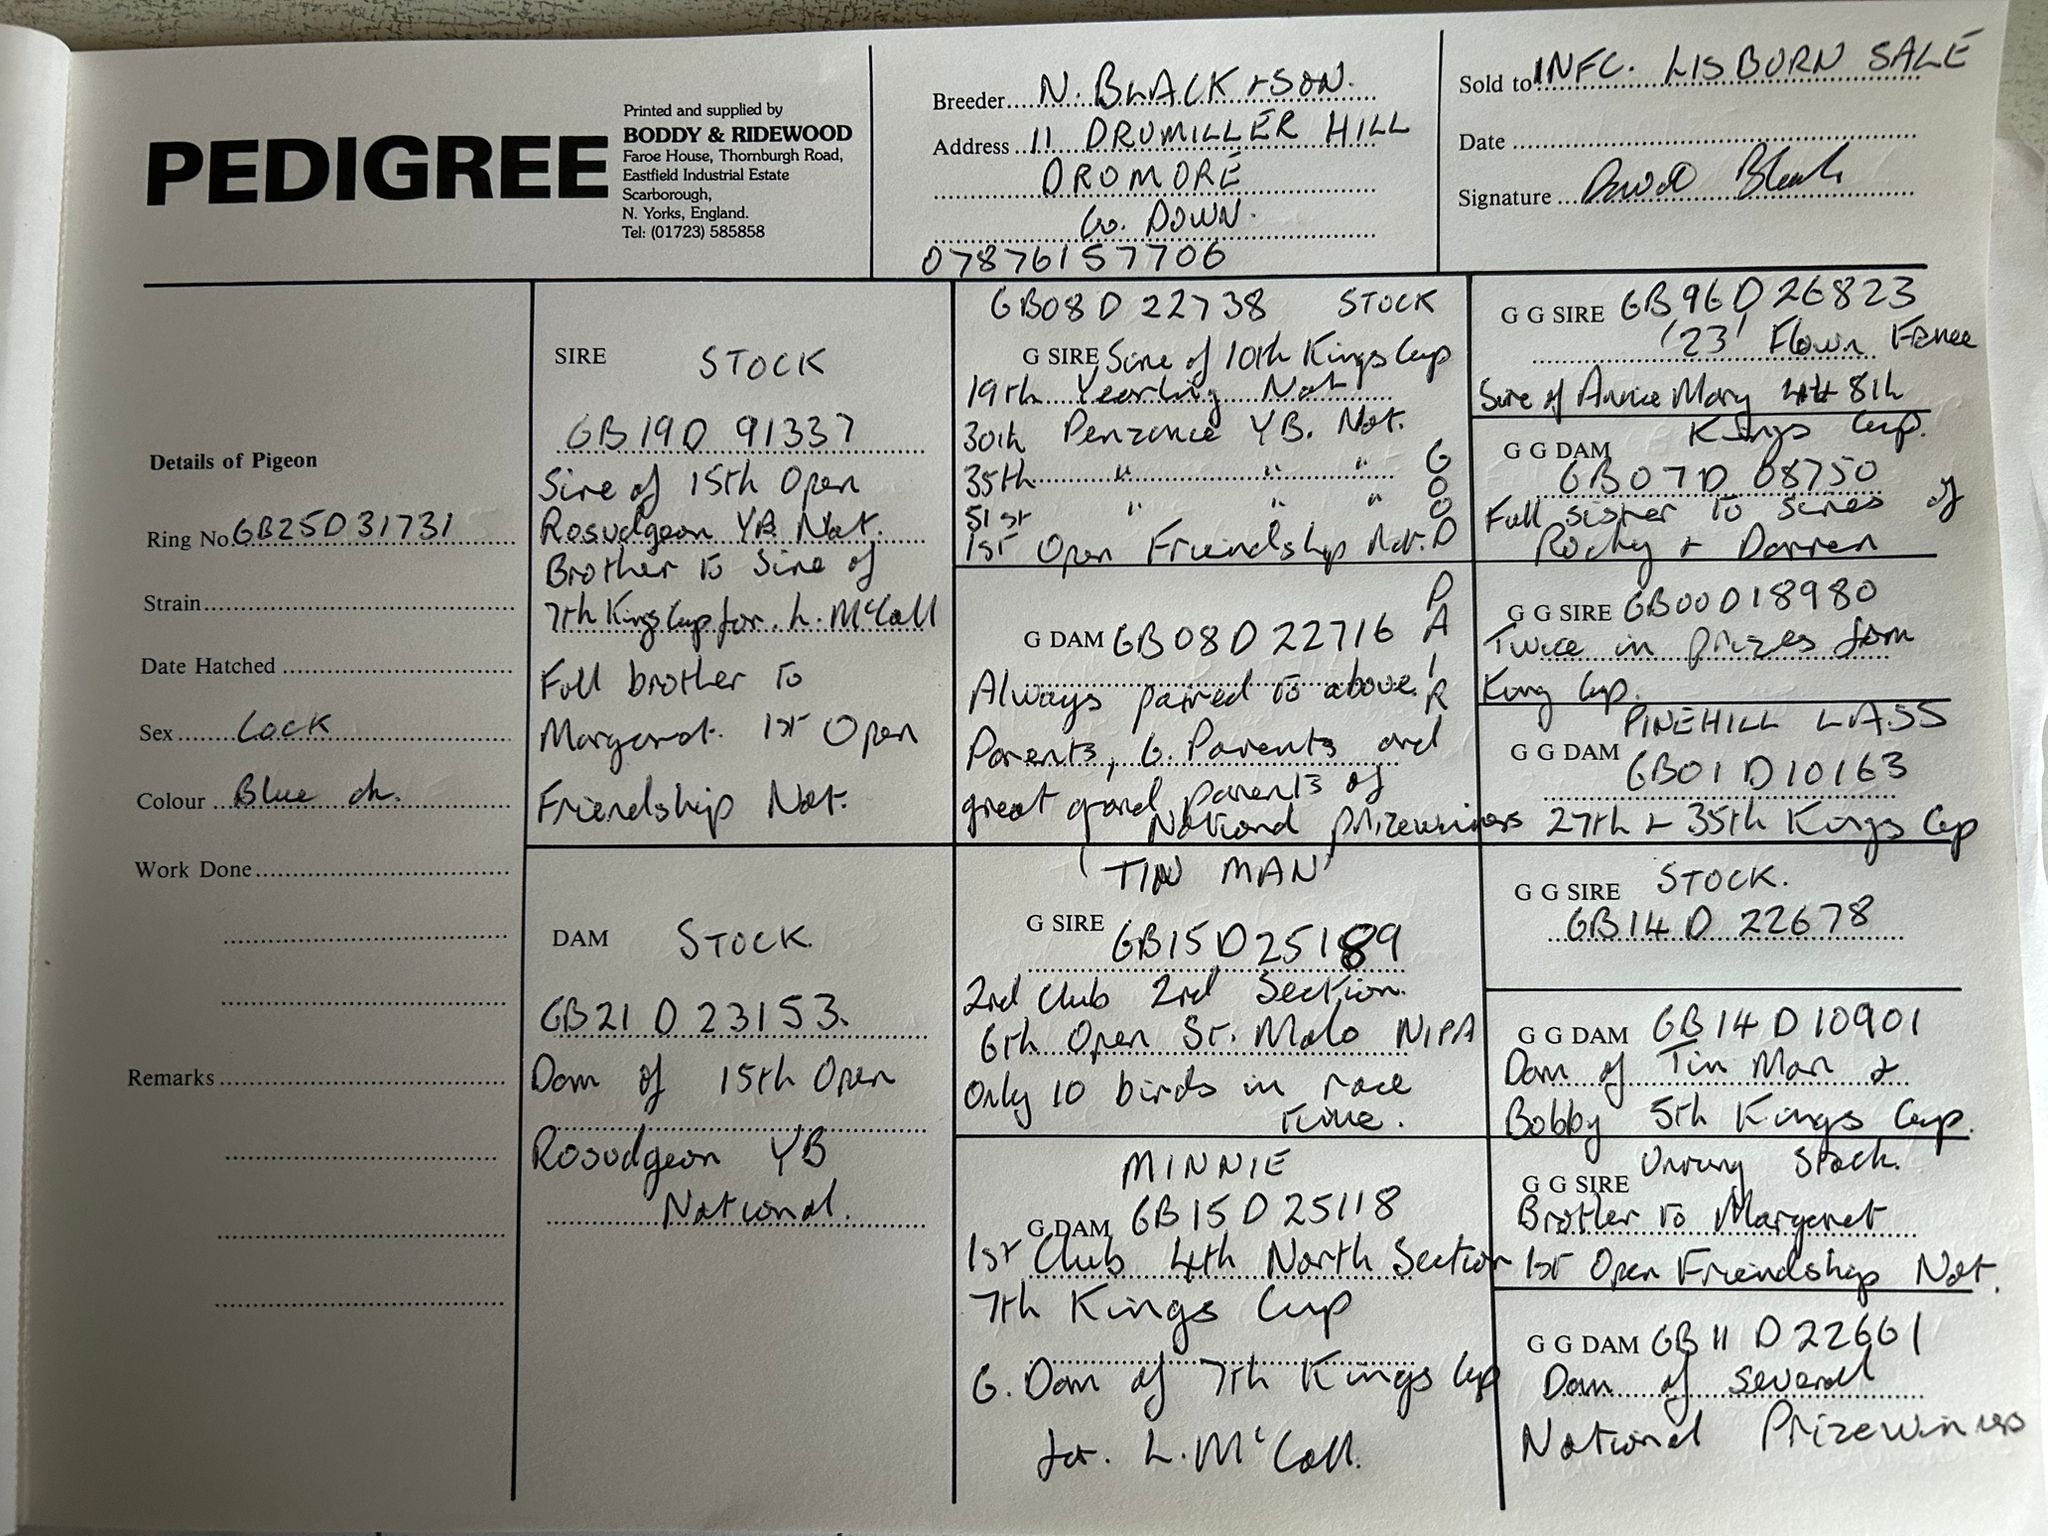 PEDIGREE
Printed and supplied by
BODDY & RIDEWOOD
Faroe House, Thornburgh Road,
Eastfield Industrial Estate
Scarborough,
N. Yorks, England.
Tel: (01723) 585858
Breeder N. BLACK + SON.
Address 11 DRUMILLER HILL
DROMORE
Co. DOWN.
07876157706
Sold to INFC. LISBURN SALE
Date
Signature David Black
Details of Pigeon
Ring No. GB25D31731
Strain
Date Hatched
Sex Cock
Colour Blue ch.
Work Done
Remarks
SIRE STOCK
GB19D 91337
Sire of 15th Open
Rosudgeon YB Nat.
Brother to Sire of
7th Kings Cup for L. McCall
Full brother to
Margaret 1st Open
Friendship Nat.
DAM STOCK
GB21 D 23153.
Dam of 15th Open
Rosudgeon YB
National.
GB08 D 22738 STOCK
G SIRE Sire of 10th Kings Cup
19th Yearling Nat
30th Penzance YB. Nat.
35th " " "
51st " " "
1st Open Friendship Nat.
GOOD
PAIR
G DAM GB08D 22716
Always paired to above.
Parents, G. Parents and
great grand parents of
National prizewiners
'TIN MAN'
G SIRE
GB15D25189
2nd Club 2nd Section.
6th Open St. Malo NIPA
Only 10 birds in race
time.
MINNIE
G DAM GB15D25118
1st Club 4th North Section
7th Kings Cup
G. Dam of 7th Kings Cup
for L. McCall.
G G SIRE GB96D26823
'23' Flown France
Sire of Annie Mary 4th 8th
Kings Cup.
G G DAM
GB07D 08750
Full sister to sires of
Rocky + Darren
G G SIRE GB00D18980
Twice in prizes from
King Cup.
PINEHILL LASS
G G DAM
GB01D10163
27th + 35th Kings Cup
G G SIRE STOCK.
GB14D 22678
G G DAM GB14D10901
Dam of Tin Man &
Bobby 5th Kings Cup.
G G SIRE Unrung Stock.
Brother to Margaret
1st Open Friendship Nat.
G G DAM GB11D22661
Dam of several
National Prizewiners